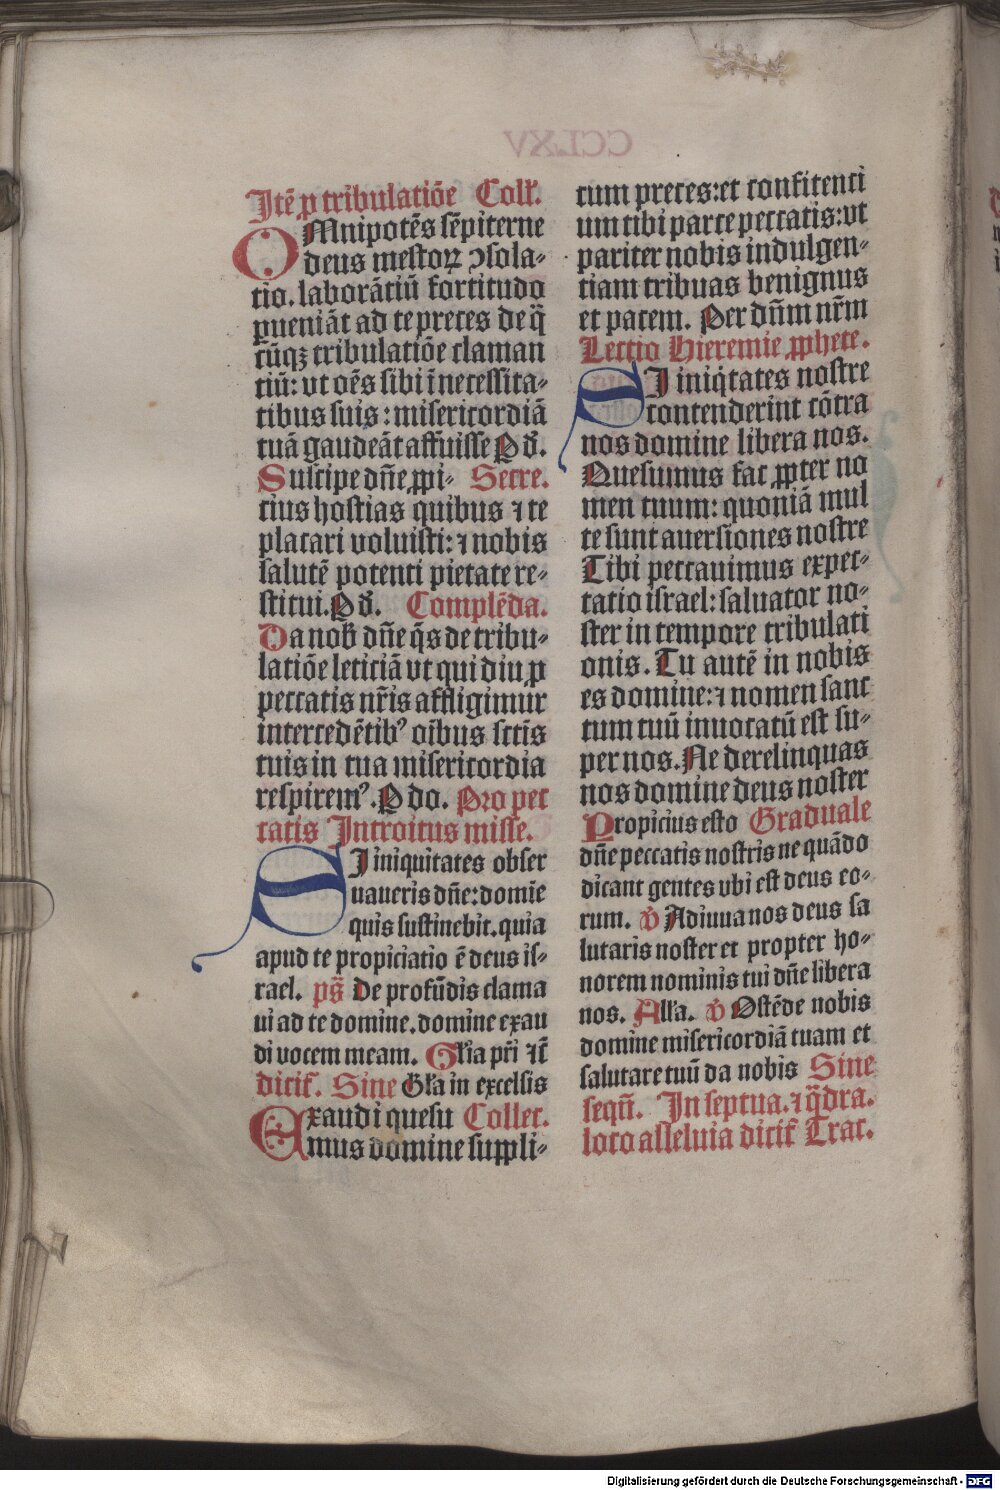 Itē ꝓ tribulatiōe Coll'.
OMnipotēs sēpiterne
deus mestoꝝ ↄsola-
tio. laborātiū fortitudo
ꝑueniāt ad te preces de q̄
cūqꝫ tribulatiōe claman
tiū: vt oēs sibi ī necessita-
tibus suis: misericordiā
tuā gaudeāt affuisse P d'.
Suscipe dn̄e ꝓpi- Secre.
cius hostias quibus ⁊ te
placari voluisti: ⁊ nobis
salutē potenti pietate re-
stitui. P d'. Complēda.
Da nob' dn̄e q̄s de tribu-
latiōe leticiā vt qui diu ꝓ
peccatis nr̄is affligimur
intercedētibꝰ oībus sctīs
tuis in tua misericordia
respiremꝰ. P do. Pro pec
catis Introitus misse.
SI iniquitates obser
uaueris dn̄e: domīe
quis sustinebit. quia
apud te propiciatio ē deus is-
rael. ps̄ De profūdis clama
ui ad te domine. domine exau
di vocem meam. Gl'ia pr̄i ⁊c̄
dicit'. Sine Gl'a in excelsis
Exaudi quesu Collec.
mus domine suppli-
cum preces: et confitenti
um tibi parce peccatis: vt
pariter nobis indulgen-
tiam tribuas benignus
et pacem. Per dn̄m nr̄m
Lectio Hieremie ꝓphete.
SI iniq̇tates nostre
contenderint cōtra
nos domine libera nos.
Quesumus fac ꝓpter no
men tuum: quoniā mul
te sunt auersiones nostre
Tibi peccauimus expec-
tatio israel: saluator no-
ster in tempore tribulati
onis. Tu autē in nobis
es domine: ⁊ nomen sanc
tum tuū inuocatū est su-
per nos. Ne derelinquas
nos domine deus noster
Propicius esto Graduale
dn̄e peccatis nostris ne quādo
dicant gentes vbi est deus eo-
rum. v̓ Adiuua nos deus sa
lutaris noster et propter ho-
norem nominis tui dn̄e libera
nos. All'a. v̓ Ostēde nobis
domine misericordiā tuam et
salutare tuū da nobis Sine
seqū. In septua. ⁊ q̄dra.
loco alleluia dicit' Trac.
CCLXV
Digitalisierung gefördert durch die Deutsche Forschungsgemeinschaft - DFG